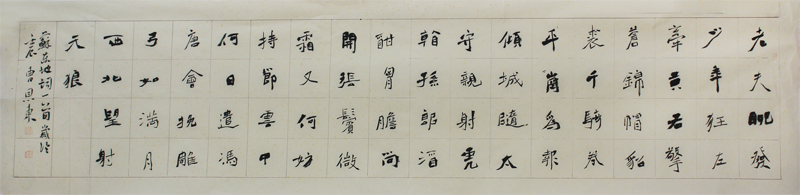 老夫聊發
少年狂左
牽黃右擎
蒼錦帽貂
裘千騎卷
平崗為報
傾城隨太
守親射虎
看孫郎酒
酣胷膽尚
開張鬢微
霜又何妨
持節雲中
何日遣馮
唐會挽雕
弓如滿月
西北望射
天狼
蘇東坡詞一首歲次
曹恩東